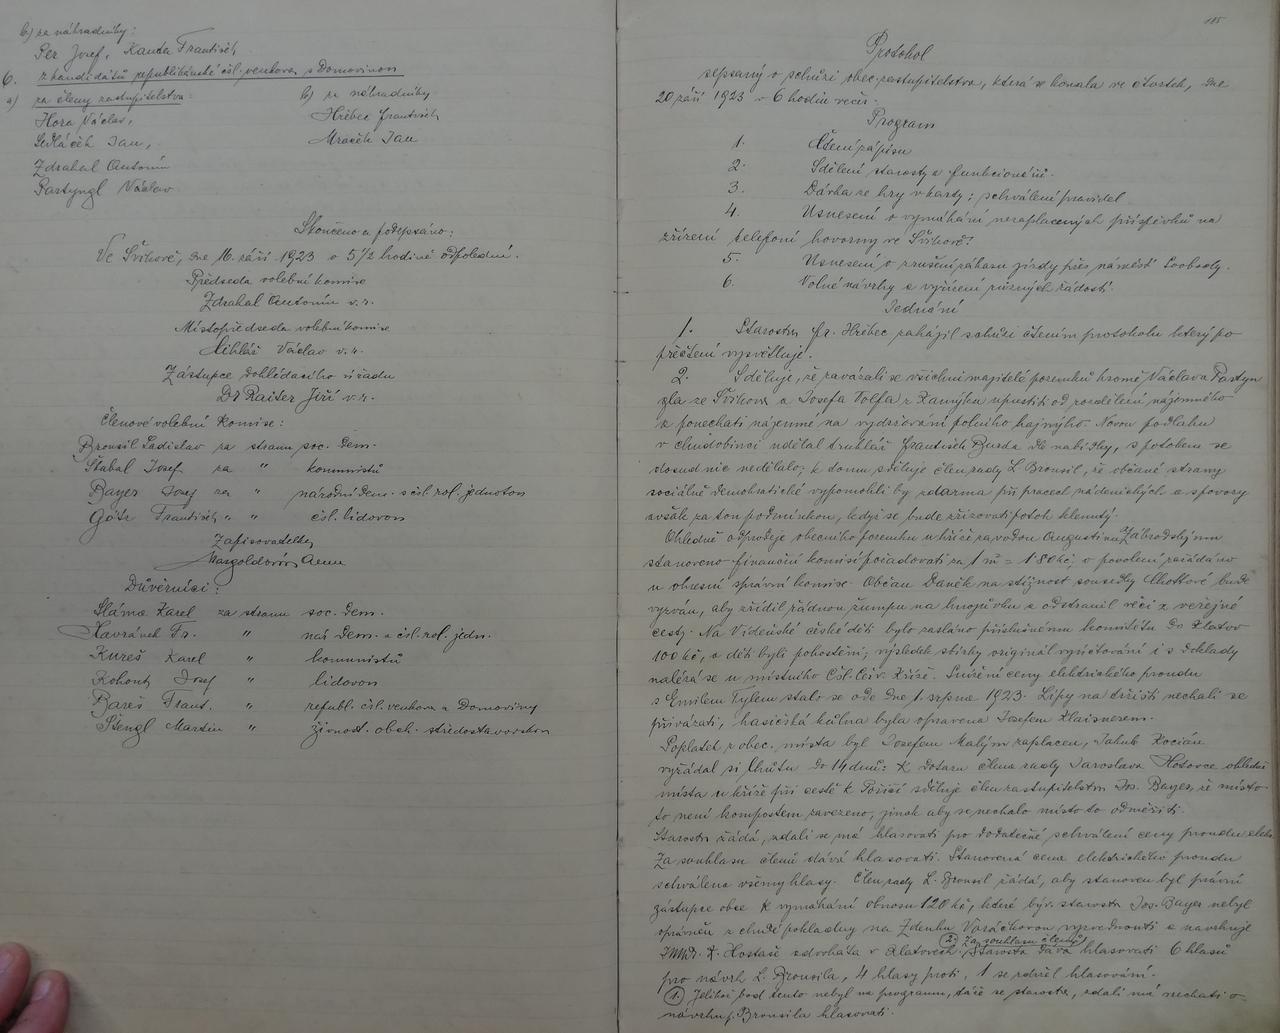 b) za náhradníky:
Pex Josef, Kanda František
6. z kandidátů republikánské čsl. venkova s Domovinou
a) za členy zastupitelstva: b) za náhradníky
Hora Václav, Hřebec František
Sedláček Jan, Mraček Jan
Zdrahal Antonín
Partyngl Václav
Skončeno a podepsáno:
Ve Švihově, dne 16. září 1923 o 5 1/2 hodině odpolední.
Předseda volební komise
Zdrahal Antonín v.r.
Místopředseda volební komise
Mikláš Václav v.r.
Zástupce dohlédacího úřadu
Dr Raiser Jiří v.r.
Členové volební komise:
Brousil Ladislav za stranu soc. dem.
Štabal Josef za " komunistů
Bayer Josef za " národní dem. s čsl. rol. jednotou
Götz František " " čsl. lidovou
Zapisovatelka
Margoldová Anna
Důvěrníci:
Sláma Karel za stranu soc. dem.
Havránek Fr. " nár. dem. a čsl. rol. jedn.
Kureš Karel " komunistů
Kohout Josef " lidovou
Bareš Frant. " republ. čsl. venkova a Domoviny
Stengl Martin " živnost. obch. středostavovskou
115
Protokol
sepsaný o schůzi obec. zastupitelstva, která se konala ve čtvrtek, dne
20 září 1923 v 6 hodin večer.
Program
1. Čtení zápisu
2. Sdělení starosty a funkcionářů.
3. Dávka ze hry v karty; schválení pravidel
4. Usnesení o vymáhání nezaplacených příspěvků na
zřízení telefoní hovorny ve Švihově.
5. Usnesení o zrušení zákazu jízdy přes náměstí Svobody.
6. Volné návrhy a vyřízení různých žádostí.
Jednání
1. Starosta fr. Hřebec zahájil schůzi čtením protokolu který po
přečtení vysvětluje.
2. Sděluje, že zavázali se všichni majitelé pozemků kromě Václava Partyn
gla ze Švihova a Josefa Volfa z Kamýku upustiti od rozdělení nájemného
a ponechati nájemné na vydržování polního hajného. Novou podlahu
v chudobinci udělal truhlář František Burda dle nabídky, s potokem se
dosud nic nedělalo; k tomu sděluje člen rady L. Brousil, že občané strany
sociálně demokratické vypomohli by zdarma při pracech nádenických a spovozy
avšak za tou podmínkou, když se bude zřizovati potok klenutý.
Ohledně odprodeje obecního pozemku u kříže za vodou Augustinu Zábrodskýmu
stanoveno finanční komisí požadovati za 1 m² = 1.80 Kč, o povolení zažádáno
u okresní správní komise. Občan Daněk na stížnost sousedky Chottové bude
vyzván, aby zřídil řádnou žumpu na hnojůvku a odstranil věci z veřejné
cesty. Na Vídeňské české děti bylo zasláno příslušnému komitétu do Klatov
100 Kč, a děti byli pohostěni; výsledek sbírky originál vyúčtování i s doklady
nalézá se u místního Čsl. Červ. Kříže. Snížení ceny elektrického proudu
s Emilem Tylem stalo se ode dne 1. srpna 1923. Lípy na tržišti nechali se
přivázati, hasičská kůlna byla opravena Josefem Klaisnerem.
Poplatek z obec. místa byl Josefem Malým zaplacen, Jakub Kocián
vyžádal si lhůtu do 14 dnů: K dotazu člena rady Jaroslava Hotovce ohledně
místa u kříže při cestě k Poříčí sděluje člen zastupitelstva Jos. Bayer, že místo
to není kompostem zavezeno, jinak aby se nechalo místo to odměřiti.
Starosta žádá, zdali se má hlasovati pro dodatečné schválení ceny proudu elekt.
Za souhlasu členů dává hlasovati. Stanovená cena elektrického proudu
schválena všemy hlasy. Člen rady L. Brousil žádá, aby stanoven byl právní
zástupce obce k vymáhání obnosu 120 Kč, které býv. starosta Jos. Bayer nebyl
oprávněn z chudé pokladny na Zdenku Voráčkovou vyzvednouti a navrhuje
JUDr. K. Hostaše advokáta v Klatovech. (2. Za souhlasu členů) Starosta dává hlasovati 6 hlasů
pro návrh L. Brousila, 4 hlasy proti, 1 se zdržel hlasování.
(1.) Jelikož bod tento nebyl na programu, táže se starosta, zdali má nechati o
návrhu p. Brousila hlasovati.